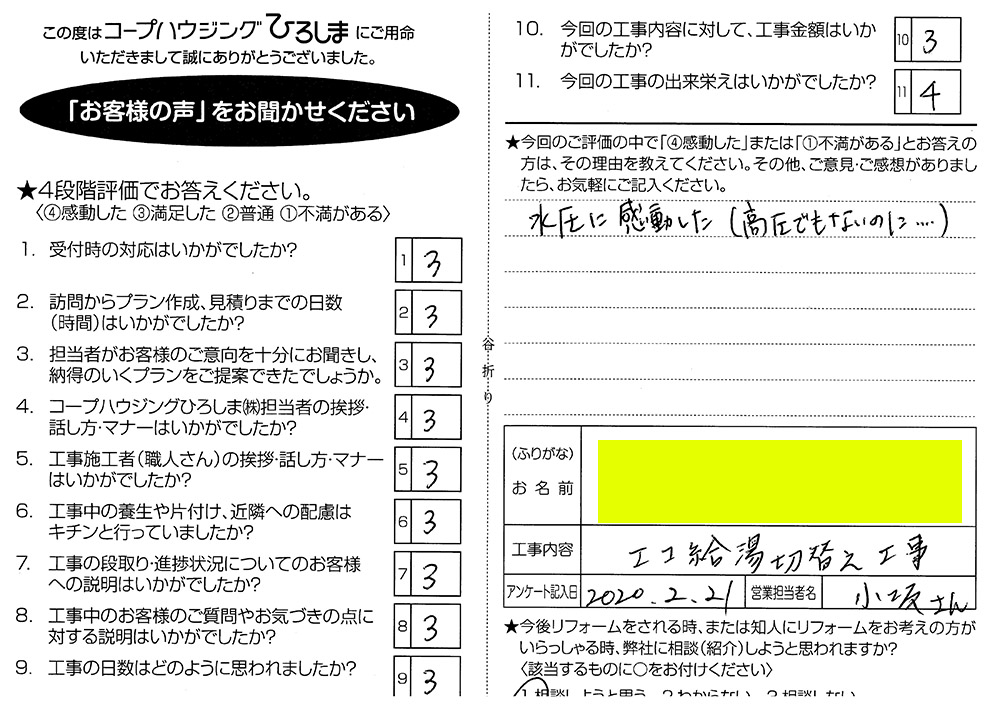 この度はコープハウジングひろしまにご用命
いただきまして誠にありがとうございました。
「お客様の声」をお聞かせください
★4段階評価でお答えください。
〈④感動した ③満足した ②普通 ①不満がある〉
1. 受付時の対応はいかがでしたか?
1 3
2. 訪問からプラン作成、見積りまでの日数
(時間)はいかがでしたか?
2 3
3. 担当者がお客様のご意向を十分にお聞きし、
納得のいくプランをご提案できたでしょうか。
3 3
4. コープハウジングひろしま㈱担当者の挨拶・
話し方・マナーはいかがでしたか?
4 3
5. 工事施工者(職人さん)の挨拶・話し方・マナー
はいかがでしたか?
5 3
6. 工事中の養生や片付け、近隣への配慮は
キチンと行っていましたか?
6 3
7. 工事の段取り・進捗状況についてのお客様
への説明はいかがでしたか?
7 3
8. 工事中のお客様のご質問やお気づきの点に
対する説明はいかがでしたか?
8 3
9. 工事の日数はどのように思われましたか?
9 3
谷折り
10. 今回の工事内容に対して、工事金額はいか
がでしたか?
10 3
11. 今回の工事の出来栄えはいかがでしたか?
11 4
★今回のご評価の中で「④感動した」または「①不満がある」とお答えの
方は、その理由を教えてください。その他、ご意見・ご感想がありまし
たら、お気軽にご記入ください。
水圧に感動した(高圧でもないのに….)
(ふりがな)
お名前
工事内容 エコ給湯切替え工事
アンケート記入日 2020.2.21 営業担当者名 小坂さん
★今後リフォームをされる時、または知人にリフォームをお考えの方が
いらっしゃる時、弊社に相談(紹介)しようと思われますか?
〈該当するものに○をお付けください〉
1.相談しようと思う 2.わからない 3.相談しない